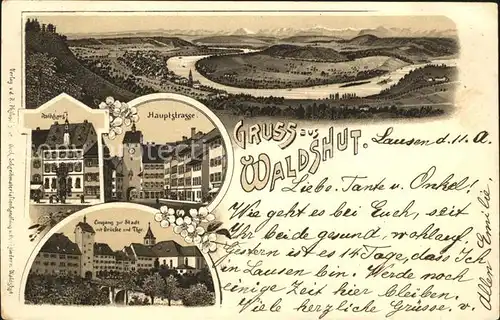 Rathhaus.
Hauptstrasse.
GRUSS aus
WALDSHUT.
Eingang zur Stadt
mit Brücke und Thor
Lausen d. 11. A
Liebe Tante u. Onkel!
Wie geht es bei Euch, seit
Ihr beide gesund, wohlauf,
Gestern ist es 14 Tage, dass Ich
in Lausen bin. Werde noch
einige Zeit hier bleiben.
Viele herzliche Grüsse. v.
allen Emilie
Verlag v.